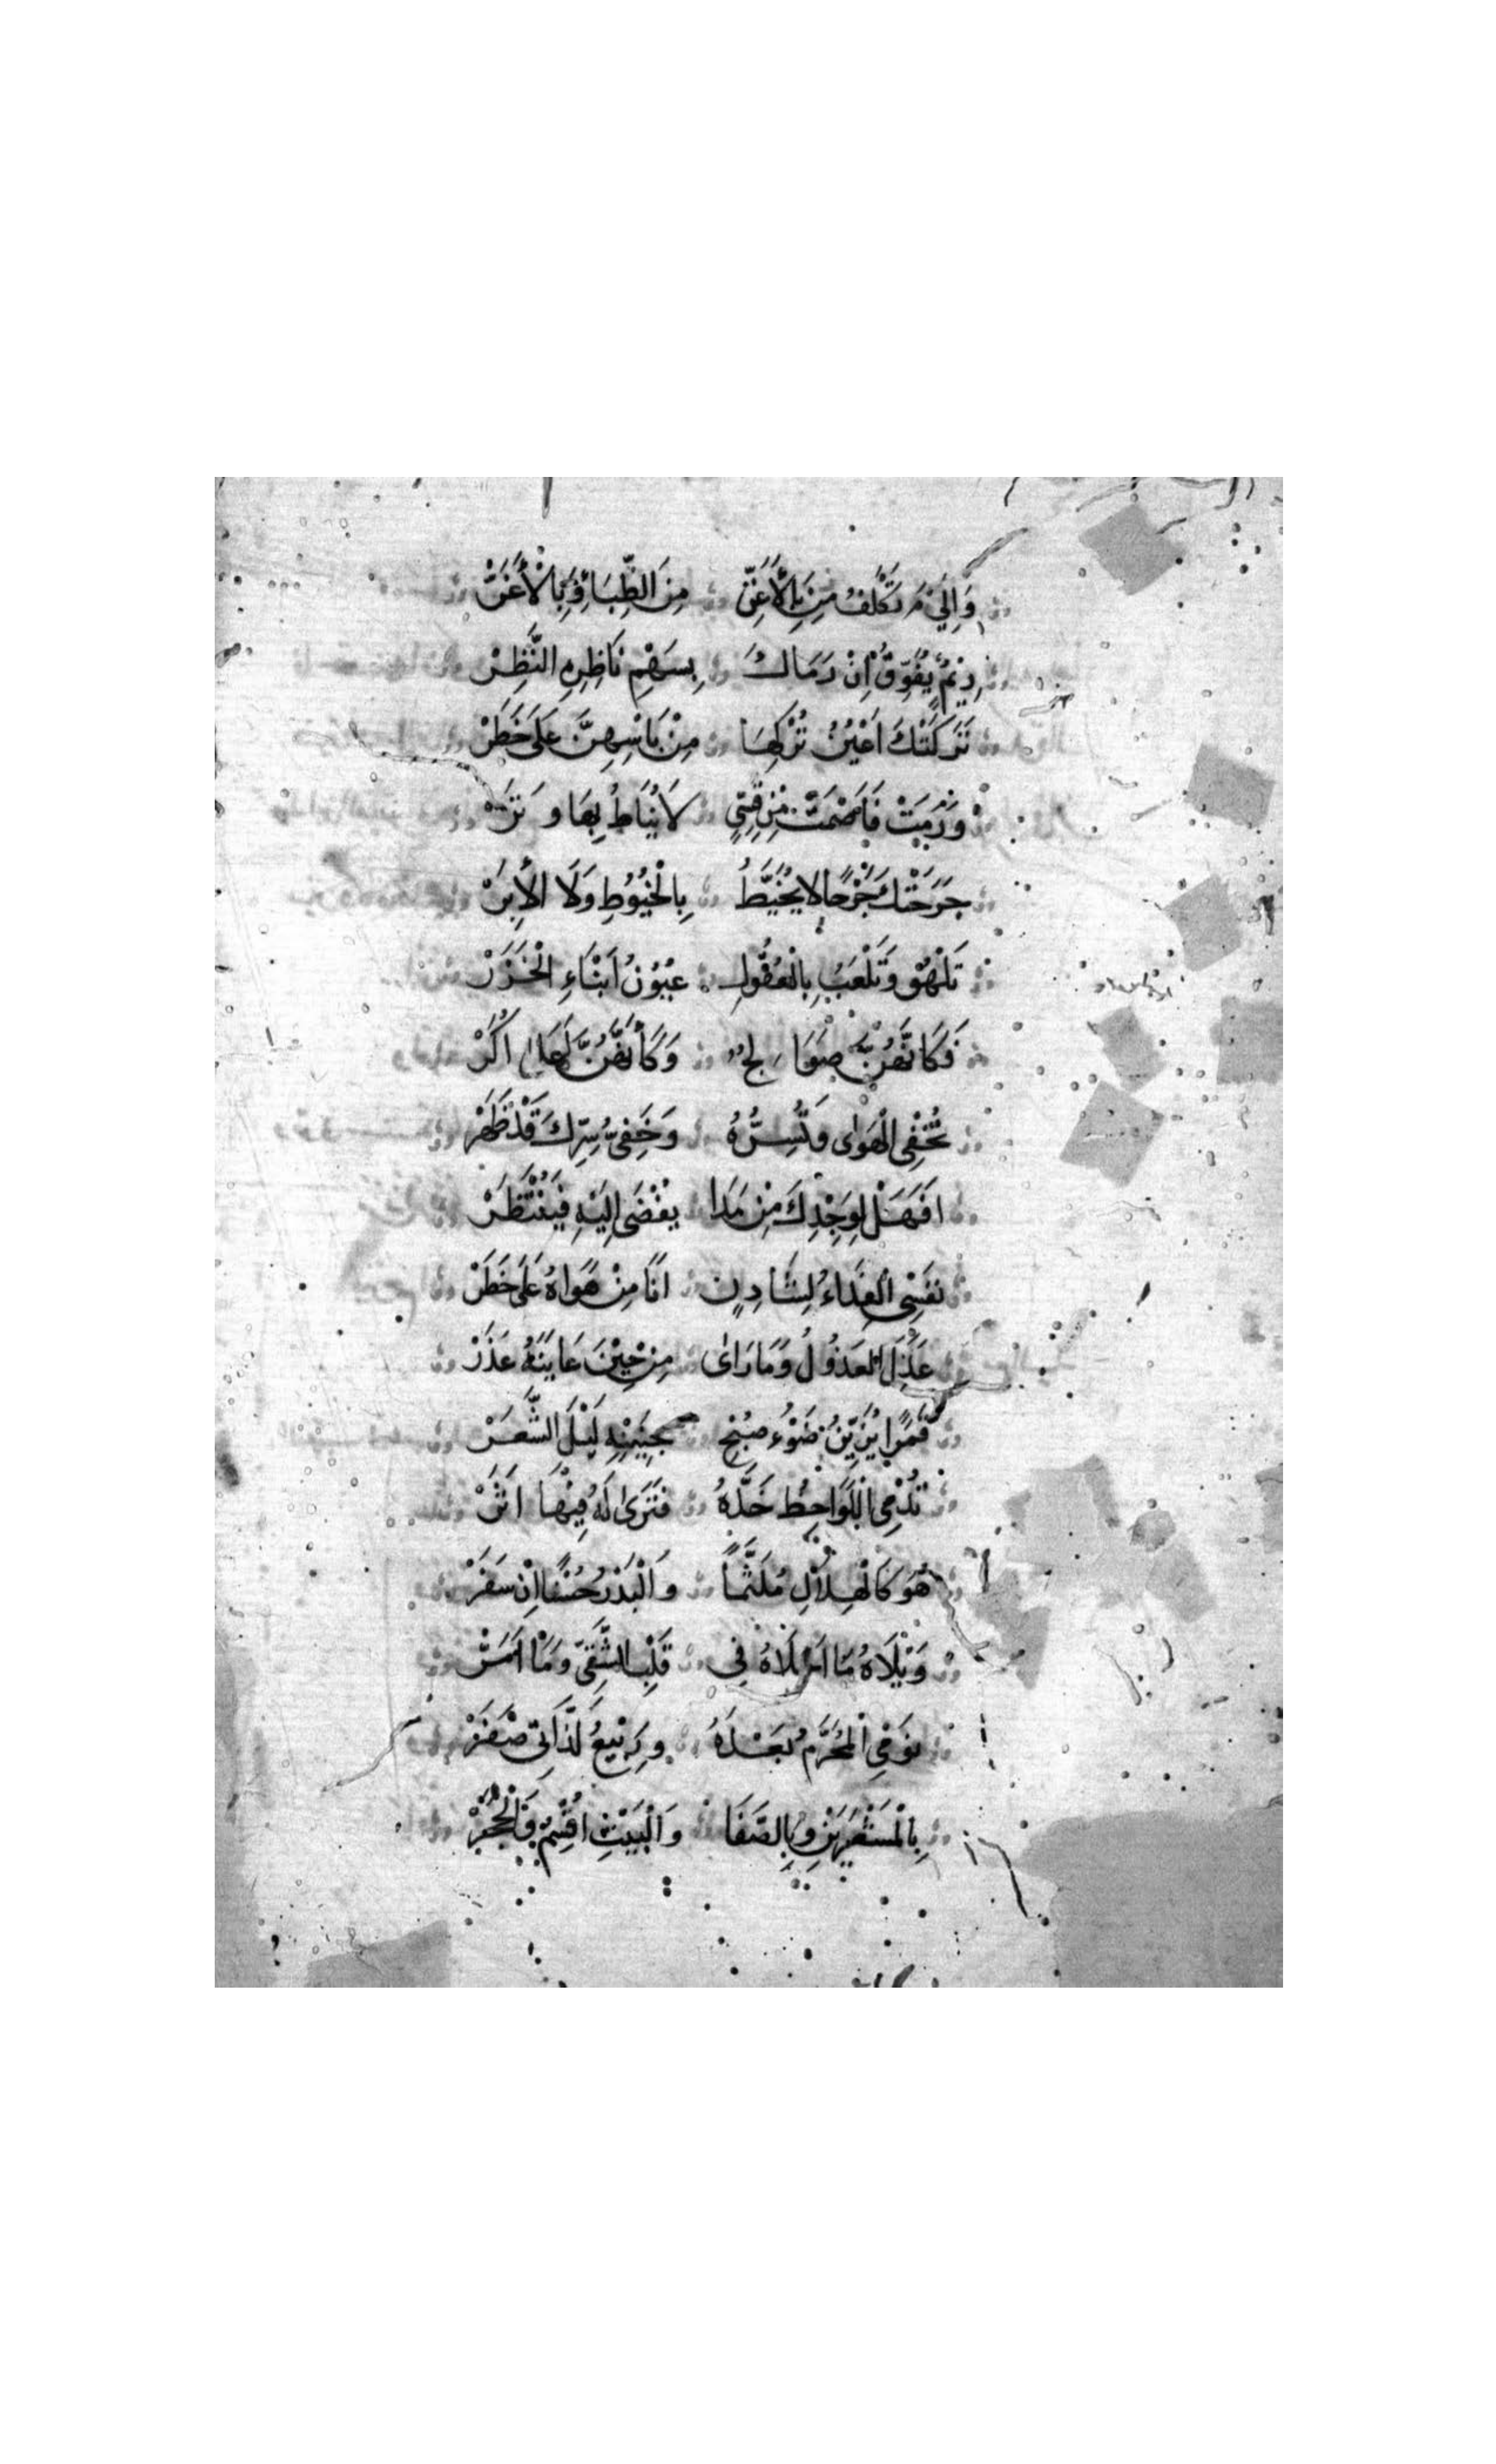 وَإِلَى مَ تَكْلَفُ مِنَ بِالْأَغَنِّ مِنَ الظِّبَاءِ وَبِالْأَغَرّْ
رِئْمٌ يُفَوِّقُ إِنْ رَمَاكَ بِسَهْمِ نَاظِرِهِ النَّظِرْ
تَرَكَتْكَ اَعْيُنُ تُرْكِهَا مِنْ بَاسِهِنَّ عَلَى خَطَرْ
وَرَمَيَتْ فَاَصْمَتْ مِنْ قِسِيٍّ لَا يُنَاطُ بِهَا وَتَرْ
جَرَحَتْكَ جُرْحًا لا يُخَيَّطُ بِالْخُيُوُطِ وَلَا الْأِبَرْ
تَلْهُوْ وَتَلْعَبُ بِالْعُقُولِ عُيُوْنُ اَبْنَاءِ الْخَزَرْ
فَكَاَنَّهُنَّ صَوَالِجٌ وَكَأَنَّهُنَّ لَهَا اُكُرْ
تُخْفِى الْهَوٰى وَتُسِرُّهُ وَخَفِيُّ سِرِّكَ قَدْ ظَهَرْ
اَفَهَلْ لِوَجْدِكَ مِنْ مَدَا يُفْضَى اِلَيْهِ فَيُنْتَظَرْ
نَفْسِى الْفِدَاءُ لِشَادِنٍ اَنَا مِنْ هَوَاهُ عَلَى خَطَرْ
عَذَلَ الْعَذُوُلُ وَمَا رَاٰى مِنْ حِيْنَ عَايَنَهُ عَذَرْ
قَمَرًا يُزَيِّنُ ضَوْءُ صُبْحِ جَبِيَنِهِ لَيْلَ الشَّعَرْ
تُدْمِى اللَّوَاحِظُ خَدَّهُ فَتَرَى لَهُ فِيْهَا اَثَرْ
هُوَ كَالْهِلَالِ مُلَثَّمًا وَالْبَدْرُ حُسْنًا اِنْ سَفَرْ
وَيْلَاهُ مَا اَحْلَاهُ فِى قَلْبِ الشَّقِىِّ وَمَا اَمَرّْ
نَوْمِى الْمُحَرَّمُ بَعْدَهُ وَرَبْيعُ لَذَّاتِى صَفَرْ
بِالْمَشْعَرَيْنِ وَبِالصَّفَا وَالْبَيْتِ اُقْسِمُ وَالْحُجَرْ